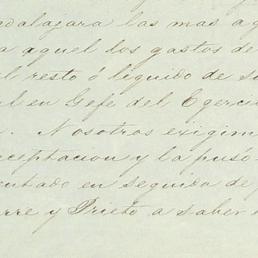 dalajara las mas a
a aquel los gastos de
l resto ó liquido de s
l en Gefe del Egerci
. Nosotros exigim
ceptacion y la puso
entado en seguida de
rre y Prieto a saber